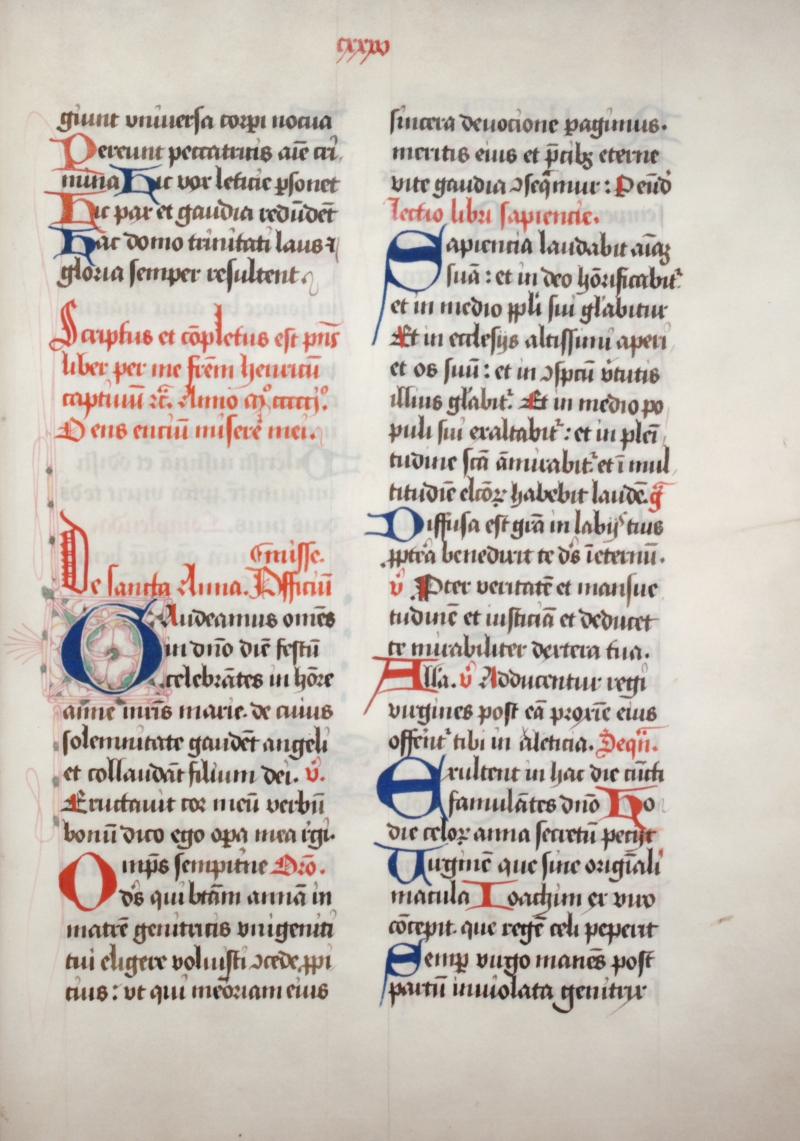 cxxxv
giunt vniuersa corpi nociua
Pereunt peccatricis aīe cri
mina Hic vox leticie ꝑsonet
Hic pax et gaudia redūdēt
Hac domo trinitati laus ⁊
gloria semper resultent
Scriptus et cōpletus est pn̄s
liber per me frēm henricū
captiuū ⁊c̄. Anno
Deus enciū miserē mei.
Cmisse.
De sancta Anna. Officiū
Gaudeamus omēs
in dn̄o diē festū
celebrātes in hōre
anne mr̄is marie. de cuius
solemnitate gaudēt angeli
et collaudāt filium dei. v̄.
Eructauit cor meū verbū
bonū dico ego oꝑa mea rgi.
Omp̄s sempitne Oro.
ds̄ qui btām annā in
matrē genitricis vnigeniti
tui eligere voluisti ↄcede ꝓpi
cius: vt qui meōriam eius
sincera deuocione pagimus.
meritis eius et p̄cibꝫ eterne
vite gaudia ↄseq̄mur: P
lectio libri sapiencie.
Sapiencia laudabit aīaꝫ
suā: et in deo hōrificabit᷑
et in medio ppl̄i sui gl̄abitur
Et in ecclesijs altissimi aperi
et os suū: et in ↄspcū v̄tutis
illius gl̄abit᷑. Et in medio po
puli sui exaltabit᷑: et in plēi
tudine scā āmirabit᷑ et ī mul
titudiē elcōꝝ habebit laudē. g̃
Diffusa est grā in labijs tuis
ꝓpterā benedixit te ds̄ ieternū.
v̄ Pter veritatē et mansue
tudinē et iusticiā et deducet
te mirabiliter dextera tua.
All'a. v̄ Adducentur regi
virgines post eā proxīe eius
offerūt tibi in aleticia. Seqū.
Exultent in hac die cūcti
famulātes dn̄o Ho
die celoꝝ anna secretū pecijt
Uirginē que sine origīali
macula Ioachim ex viro
cōcepit. que regē celi peperit
Semp virgo manēs post
partū inuiolata genitrix